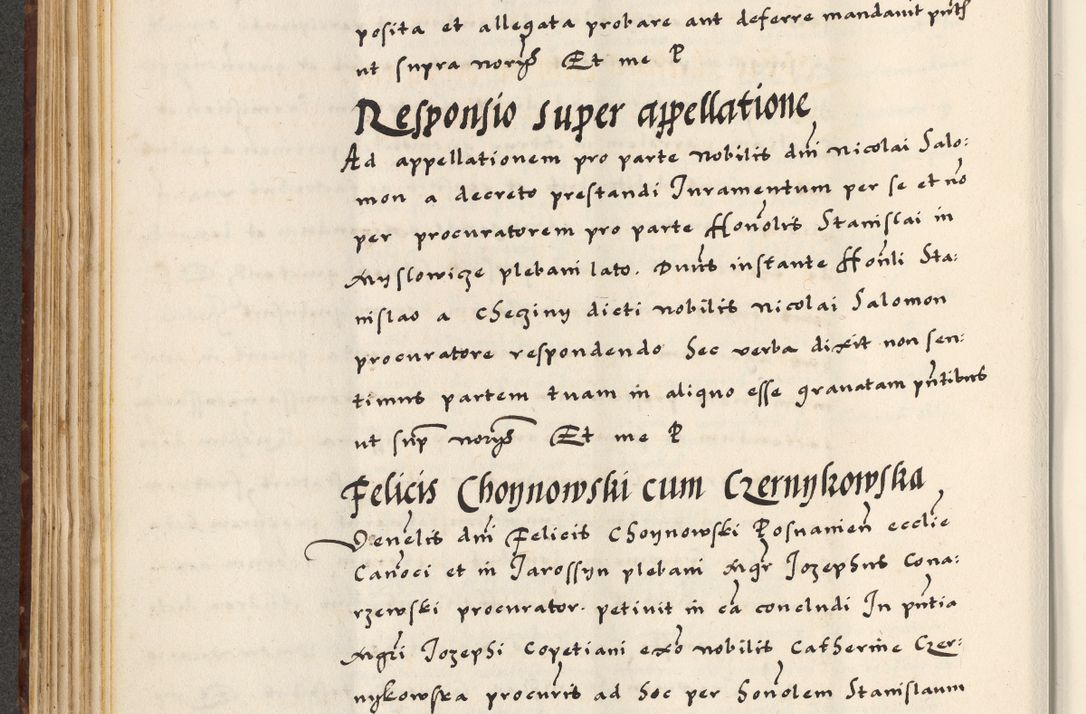 posita et allegata probare aut deferre mandavit pñtƷ
ut supra noriƷ Et me P
Responsio super appellatione
Ad appellationem pro parte nobilis dñi Nicolai Salo:
mon a decreto prestandi Iuramentum per se et nõ
per procuratorem pro parte Honõlis Stanislai in
Myslowicze plebani lato. Dnñs instante Honñli Sta:
nislao a Checziny dicti nobilis Nicolai Salomon
procuratore respondendo hec verba dixit non sen:
timus partem tuam in aliquo esse gravatam pñtibus
ut sup̃ noriƷ Et me P
Felicis Choynowski cum Czernykowska
Venẽlis dñi Felicis Choynowski Posnanieñ ecclie
Canõci et in Jarossyn plebani Mgr Jozephus Cona:
rzewski procurator. petivit in cã concludi In pñtia
Mgri Jozephi Copetiani exõ nobilis Catherine Czer:
nykowska procuris ad hoc per honõlem Stanislaum